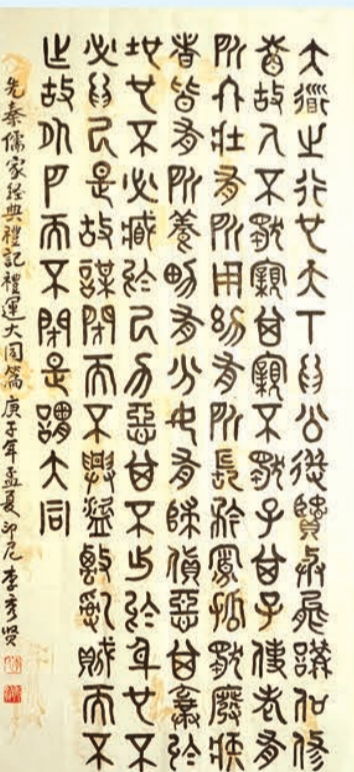 大道之行也天下為公選賢與能講信修
睦故人不獨親其親不獨子其子使老有
所終壯有所用幼有所長矜寡孤獨廢疾
者皆有所養男有分女有歸貨惡其棄於
地也不必藏於己力惡其不出於身也不
必為己是故謀閉而不興盜竊亂賊而不
作故外戶而不閉是謂大同
先秦儒家经典禮記禮運大同篇庚子年孟夏印尼李